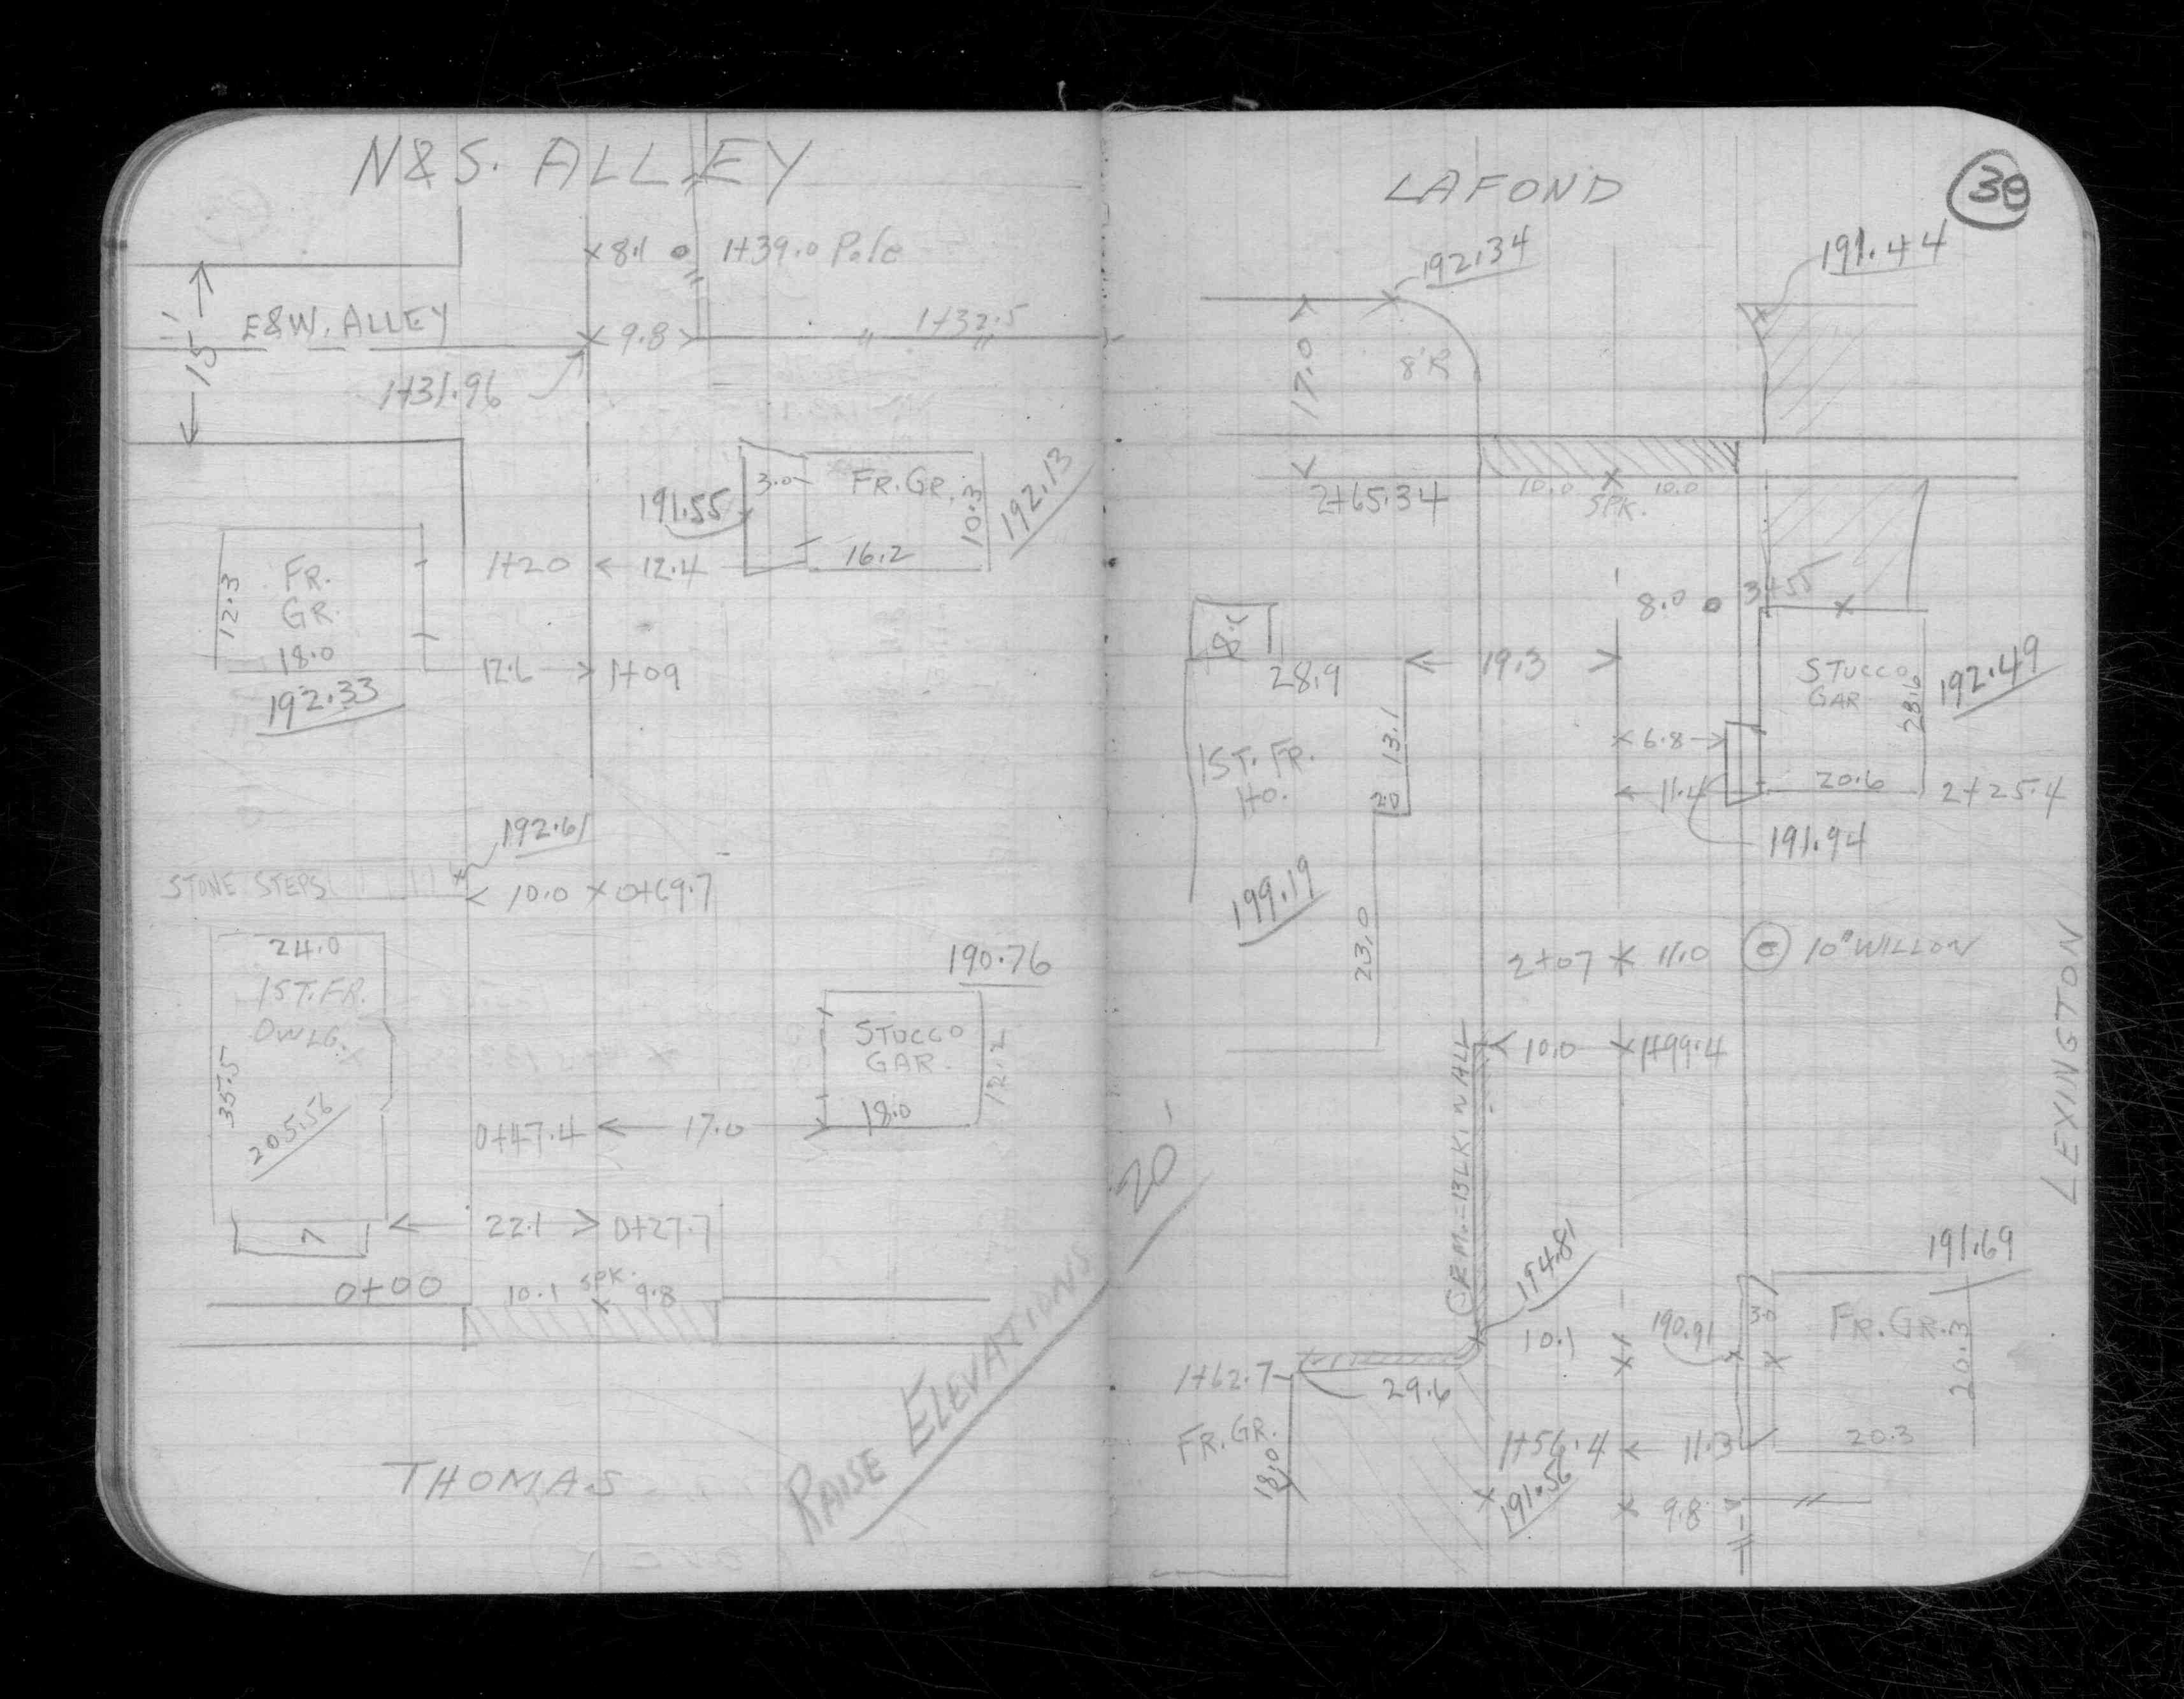 N&S. ALLEY
×8.1 o 1+39.0 Pole
15'
E&W. ALLEY
×9.8> 1+32.5
1+31.96
3.0
FR. GR.
10.3
192.13
191.55
1+20 < 12.4
16.2
12.3
FR.
GR.
18.0
12.6 > 1+09
192.33
192.61
STONE STEPS
< 10.0 × 0+69.7
24.0
1ST. FR.
DWLG.
35.5
205.56
190.76
STUCCO
GAR.
12.2
18.0
0+47.4 < 17.0
< 22.1 > 0+27.7
0+00
10.1 SPK. 9.8
THOMAS
RAISE ELEVATIONS 20'
LAFOND
38
192.34
191.44
17.0
8'R
2+65.34
10.0 × 10.0
SPK.
8.0 o
28.9
< 19.3 >
STUCCO
GAR
28.6
192.49
13.1
× 6.8 >
1ST. FR.
HO.
2.0
< 11.4
20.6
2+25.4
191.94
199.19
23.0
2+07 × 11.0 10" WILLOW
< 10.0 × 1+99.4
LEXINGTON
CEM.-BLK. WALL
194.81
191.69
10.1
190.91
3.0
FR. GR.
20.3
1+62.7
29.6
FR. GR.
18.0
1+56.4 < 11.3
20.3
191.56
× 9.8 >